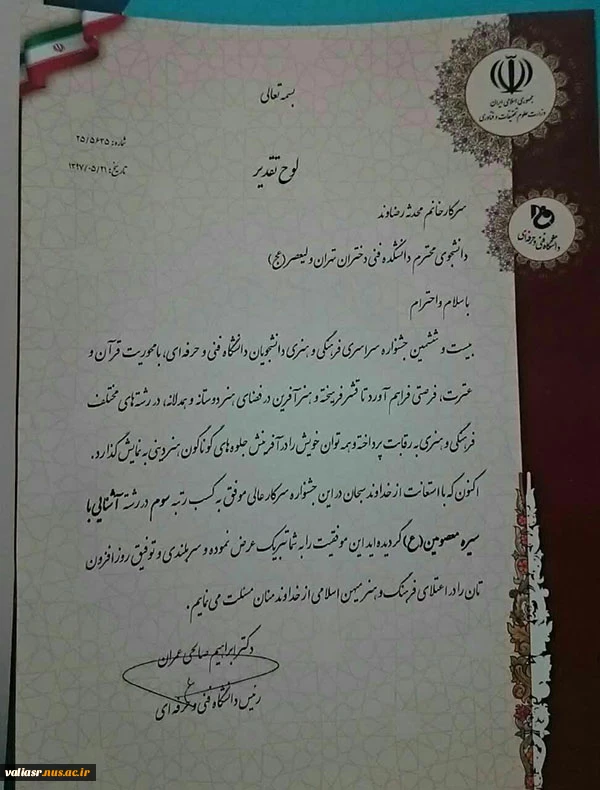 جمهوری اسلامی ایران
وزارت علوم تحقیقات و فناوری
دانشگاه فنی و حرفه‌ای
بسمه تعالی
شماره: ۲۵/۵۶۳۵
تاریخ: ۱۳۹۷/۰۵/۲۱
لوح تقدیر
سرکار خانم محدثه رضاوند
دانشجوی محترم دانشکده فنی دختران تهران ولیعصر (عج)
با سلام و احترام
بیست و ششمین جشنواره سراسری فرهنگی و هنری دانشجویان دانشگاه فنی و حرفه ای، با محوریت قرآن و
عترت، فرصتی فراهم آورد تا قشر فرهیخته و هنرآفرین در فضای هنردوستانه و همدلانه، در رشته های مختلف
فرهنگی و هنری به رقابت پرداخته و همه توان خویش را در آفرینش جلوه های گوناگون هنر دینی به نمایش گذارد.
اکنون که با استعانت از خداوند سبحان در این جشنواره سرکار عالی موفق به کسب رتبه سوم در رشته آشنایی با
سیره معصومین (ع) گردیده اید این موفقیت را به شما تبریک عرض نموده و سربلندی و توفیق روز افزون
تان را در اعتلای فرهنگ و هنر میهن اسلامی از خداوند منان مسئلت می نمایم.
دکتر ابراهیم صالحی عمران
رئیس دانشگاه فنی و حرفه ای
valiasr.nus.ac.ir